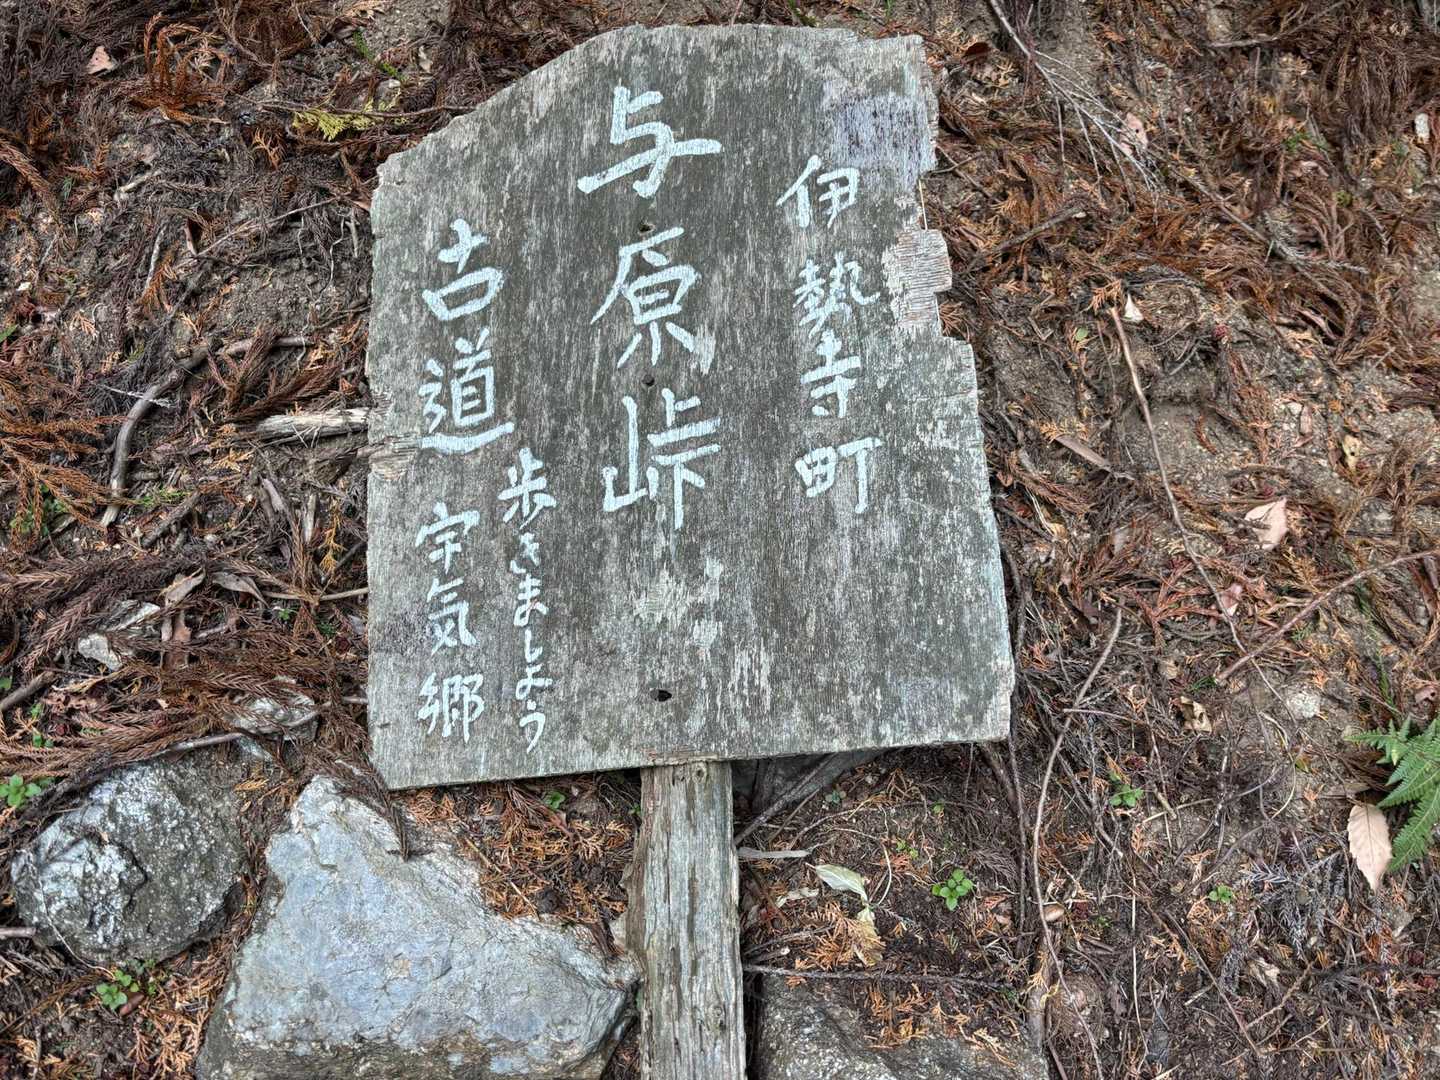 伊勢寺町
与原峠
古道歩きましょう
宇気郷